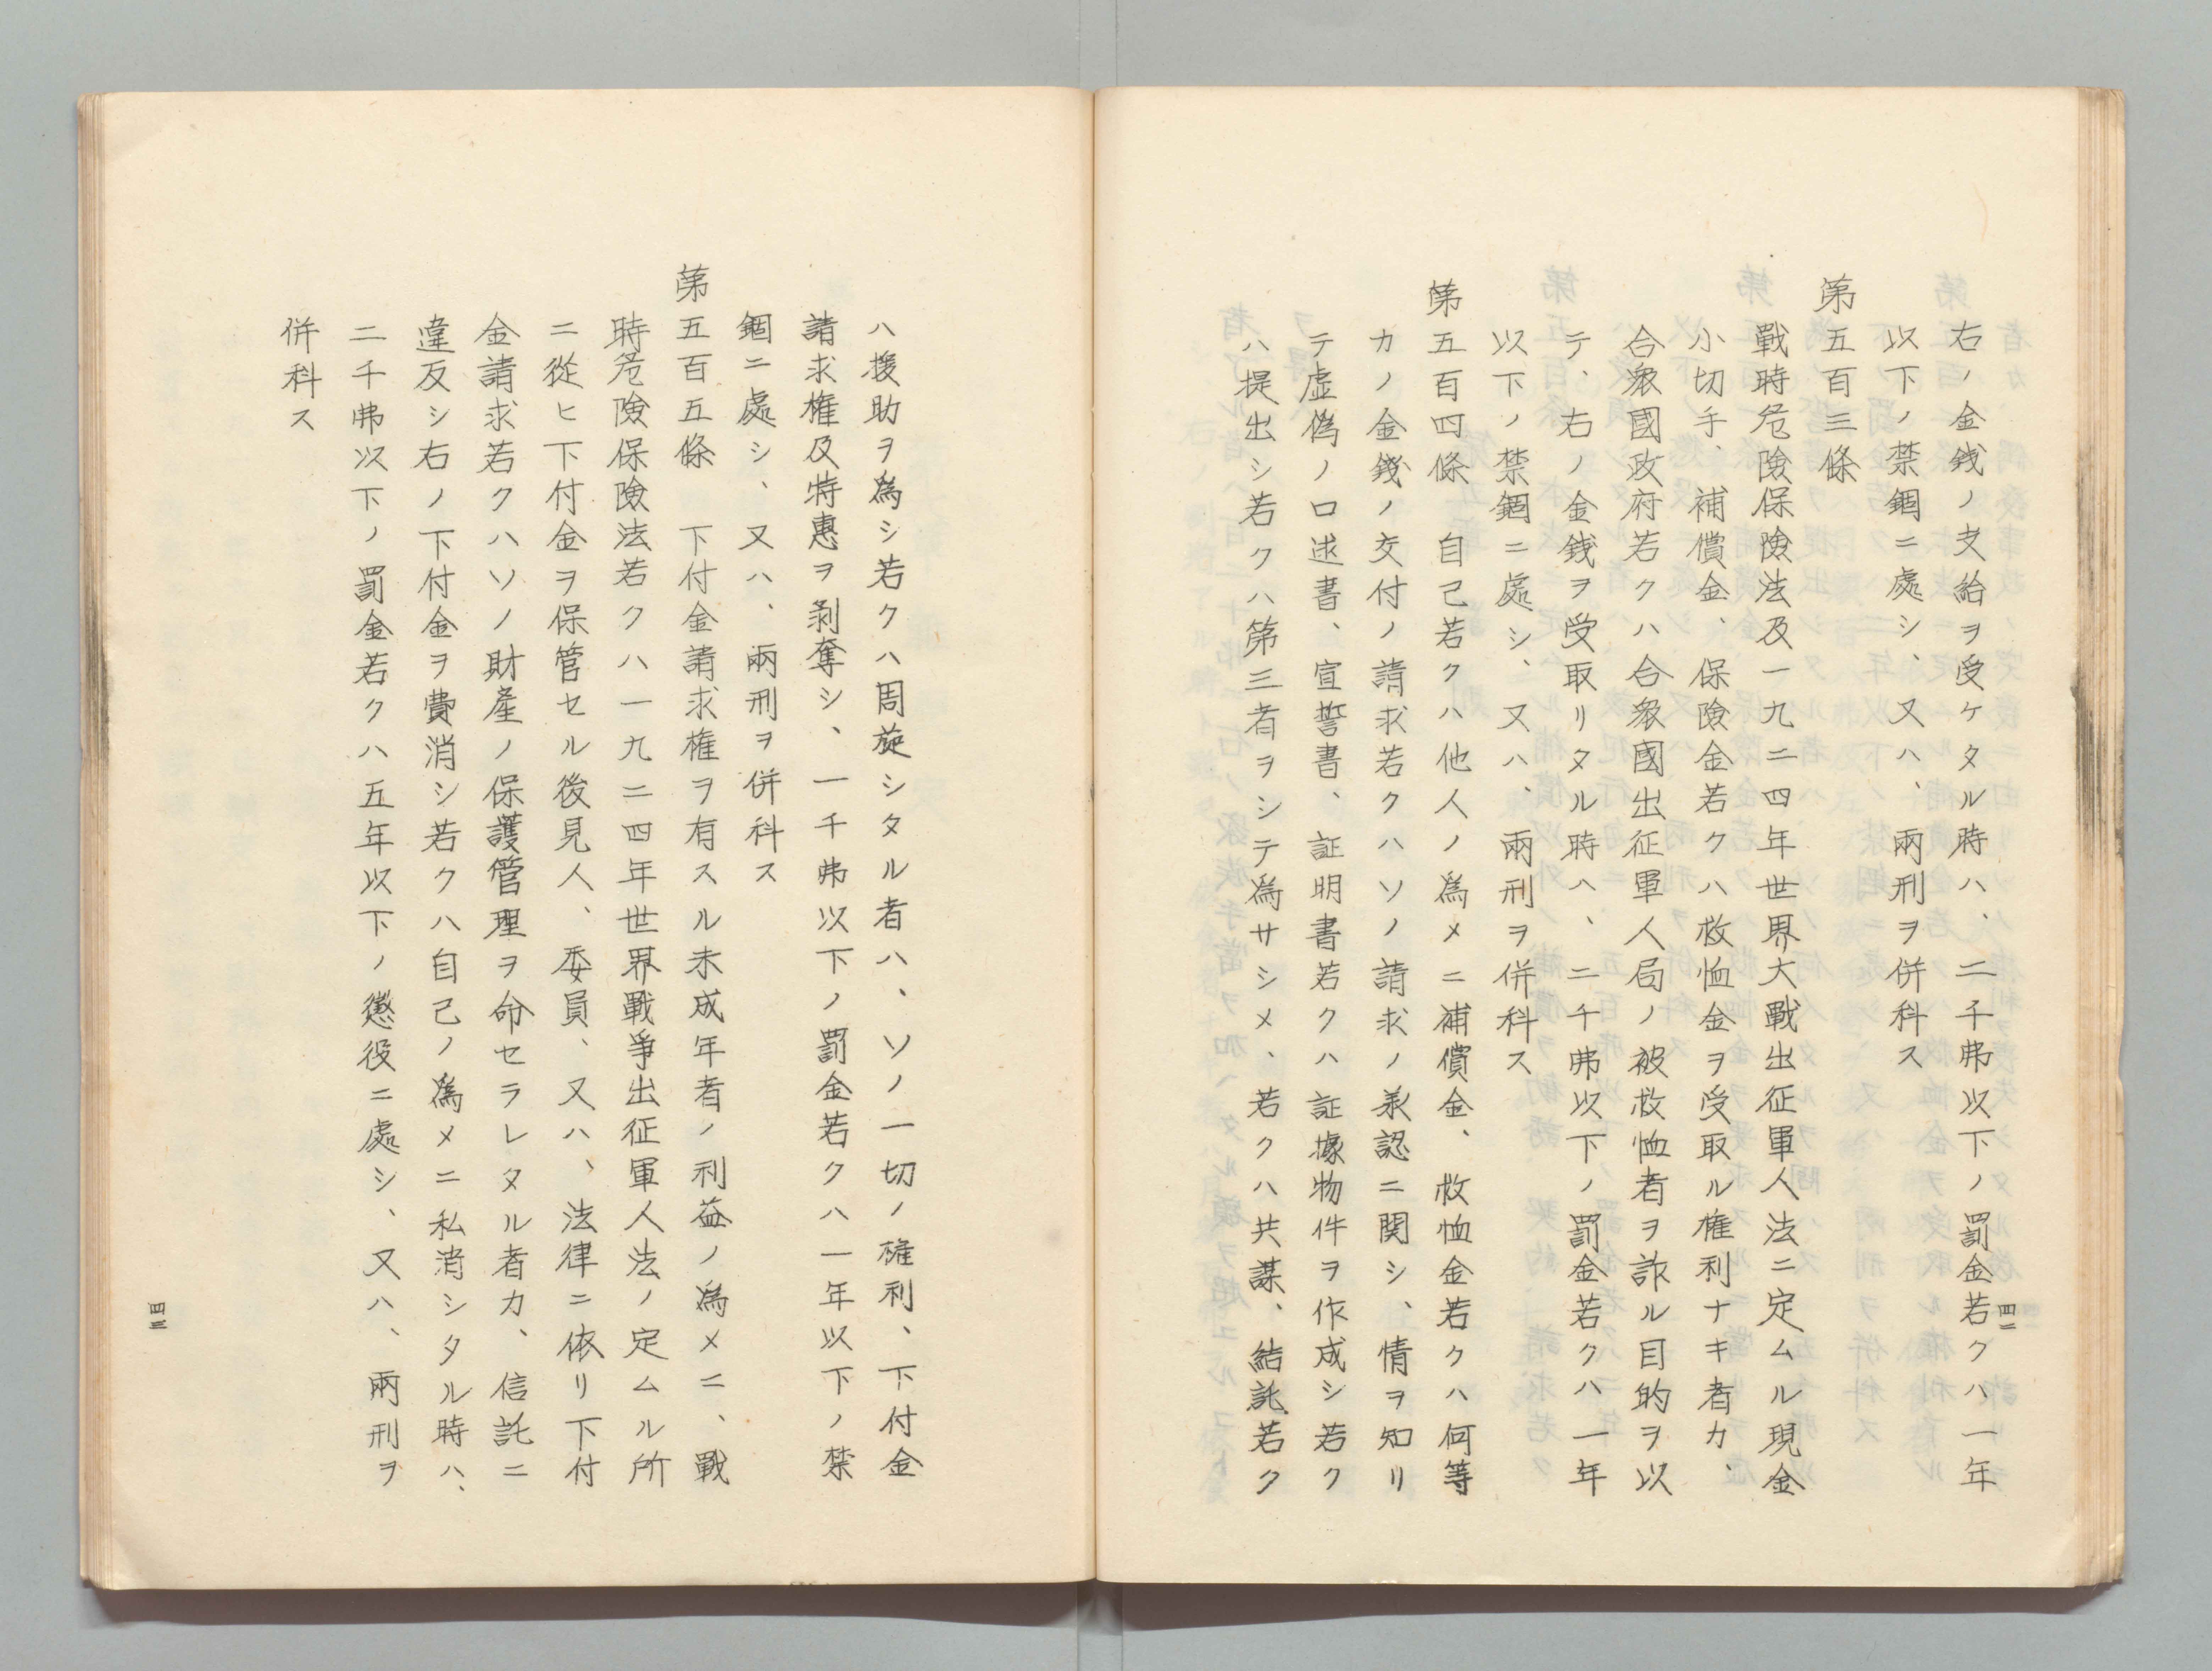 右ノ金錢ノ支給ヲ受ケタル時ハ、二千弗以下ノ罰金若クハ一年
以下ノ禁錮ニ處シ、又ハ、兩刑ヲ併科ス
第五百三條
戰時危險保險法及一九二四年世界大戰出征軍人法ニ定ムル現金
小切手、補償金、保險金若クハ救恤金ヲ受取ル權利ナキ者カ、
合衆國政府若クハ合衆國出征軍人局ノ被救恤者ヲ詐ル目的ヲ以
テ、右ノ金錢ヲ受取リタル時ハ、二千弗以下ノ罰金若クハ一年
以下ノ禁錮ニ處シ、又ハ、兩刑ヲ併科ス
第五百四條 自己若クハ他人ノ爲メニ補償金、救恤金若クハ何等
カノ金錢ノ交付ノ請求若クハソノ請求ノ承認ニ関シ、情ヲ知リ
テ虚偽ノ口述書、宣誓書、証明書若クハ証據物件ヲ作成シ若ク
ハ提出シ若クハ第三者ヲシテ爲サシメ、若クハ共謀、結託若ク
四二
ハ援助ヲ爲シ若クハ周旋シタル者ハ、ソノ一切ノ權利、下付金
請求權及特惠ヲ剥奪シ、一千弗以下ノ罰金若クハ一年以下ノ禁
錮ニ處シ、又ハ、兩刑ヲ併科ス
第五百五條 下付金請求權ヲ有スル未成年者ノ利益ノ爲メニ、戰
時危險保險法若クハ一九二四年世界戰爭出征軍人法ノ定ムル所
ニ從ヒ下付金ヲ保管セル後見人、委員、又ハ、法律ニ依リ下付
金請求若クハソノ財產ノ保護管理ヲ命セラレタル者カ、信託ニ
違反シ右ノ下付金ヲ費消シ若クハ自己ノ爲メニ私消シタル時ハ、
二千弗以下ノ罰金若クハ五年以下ノ懲役ニ處シ、又ハ、兩刑ヲ
併科ス
四三